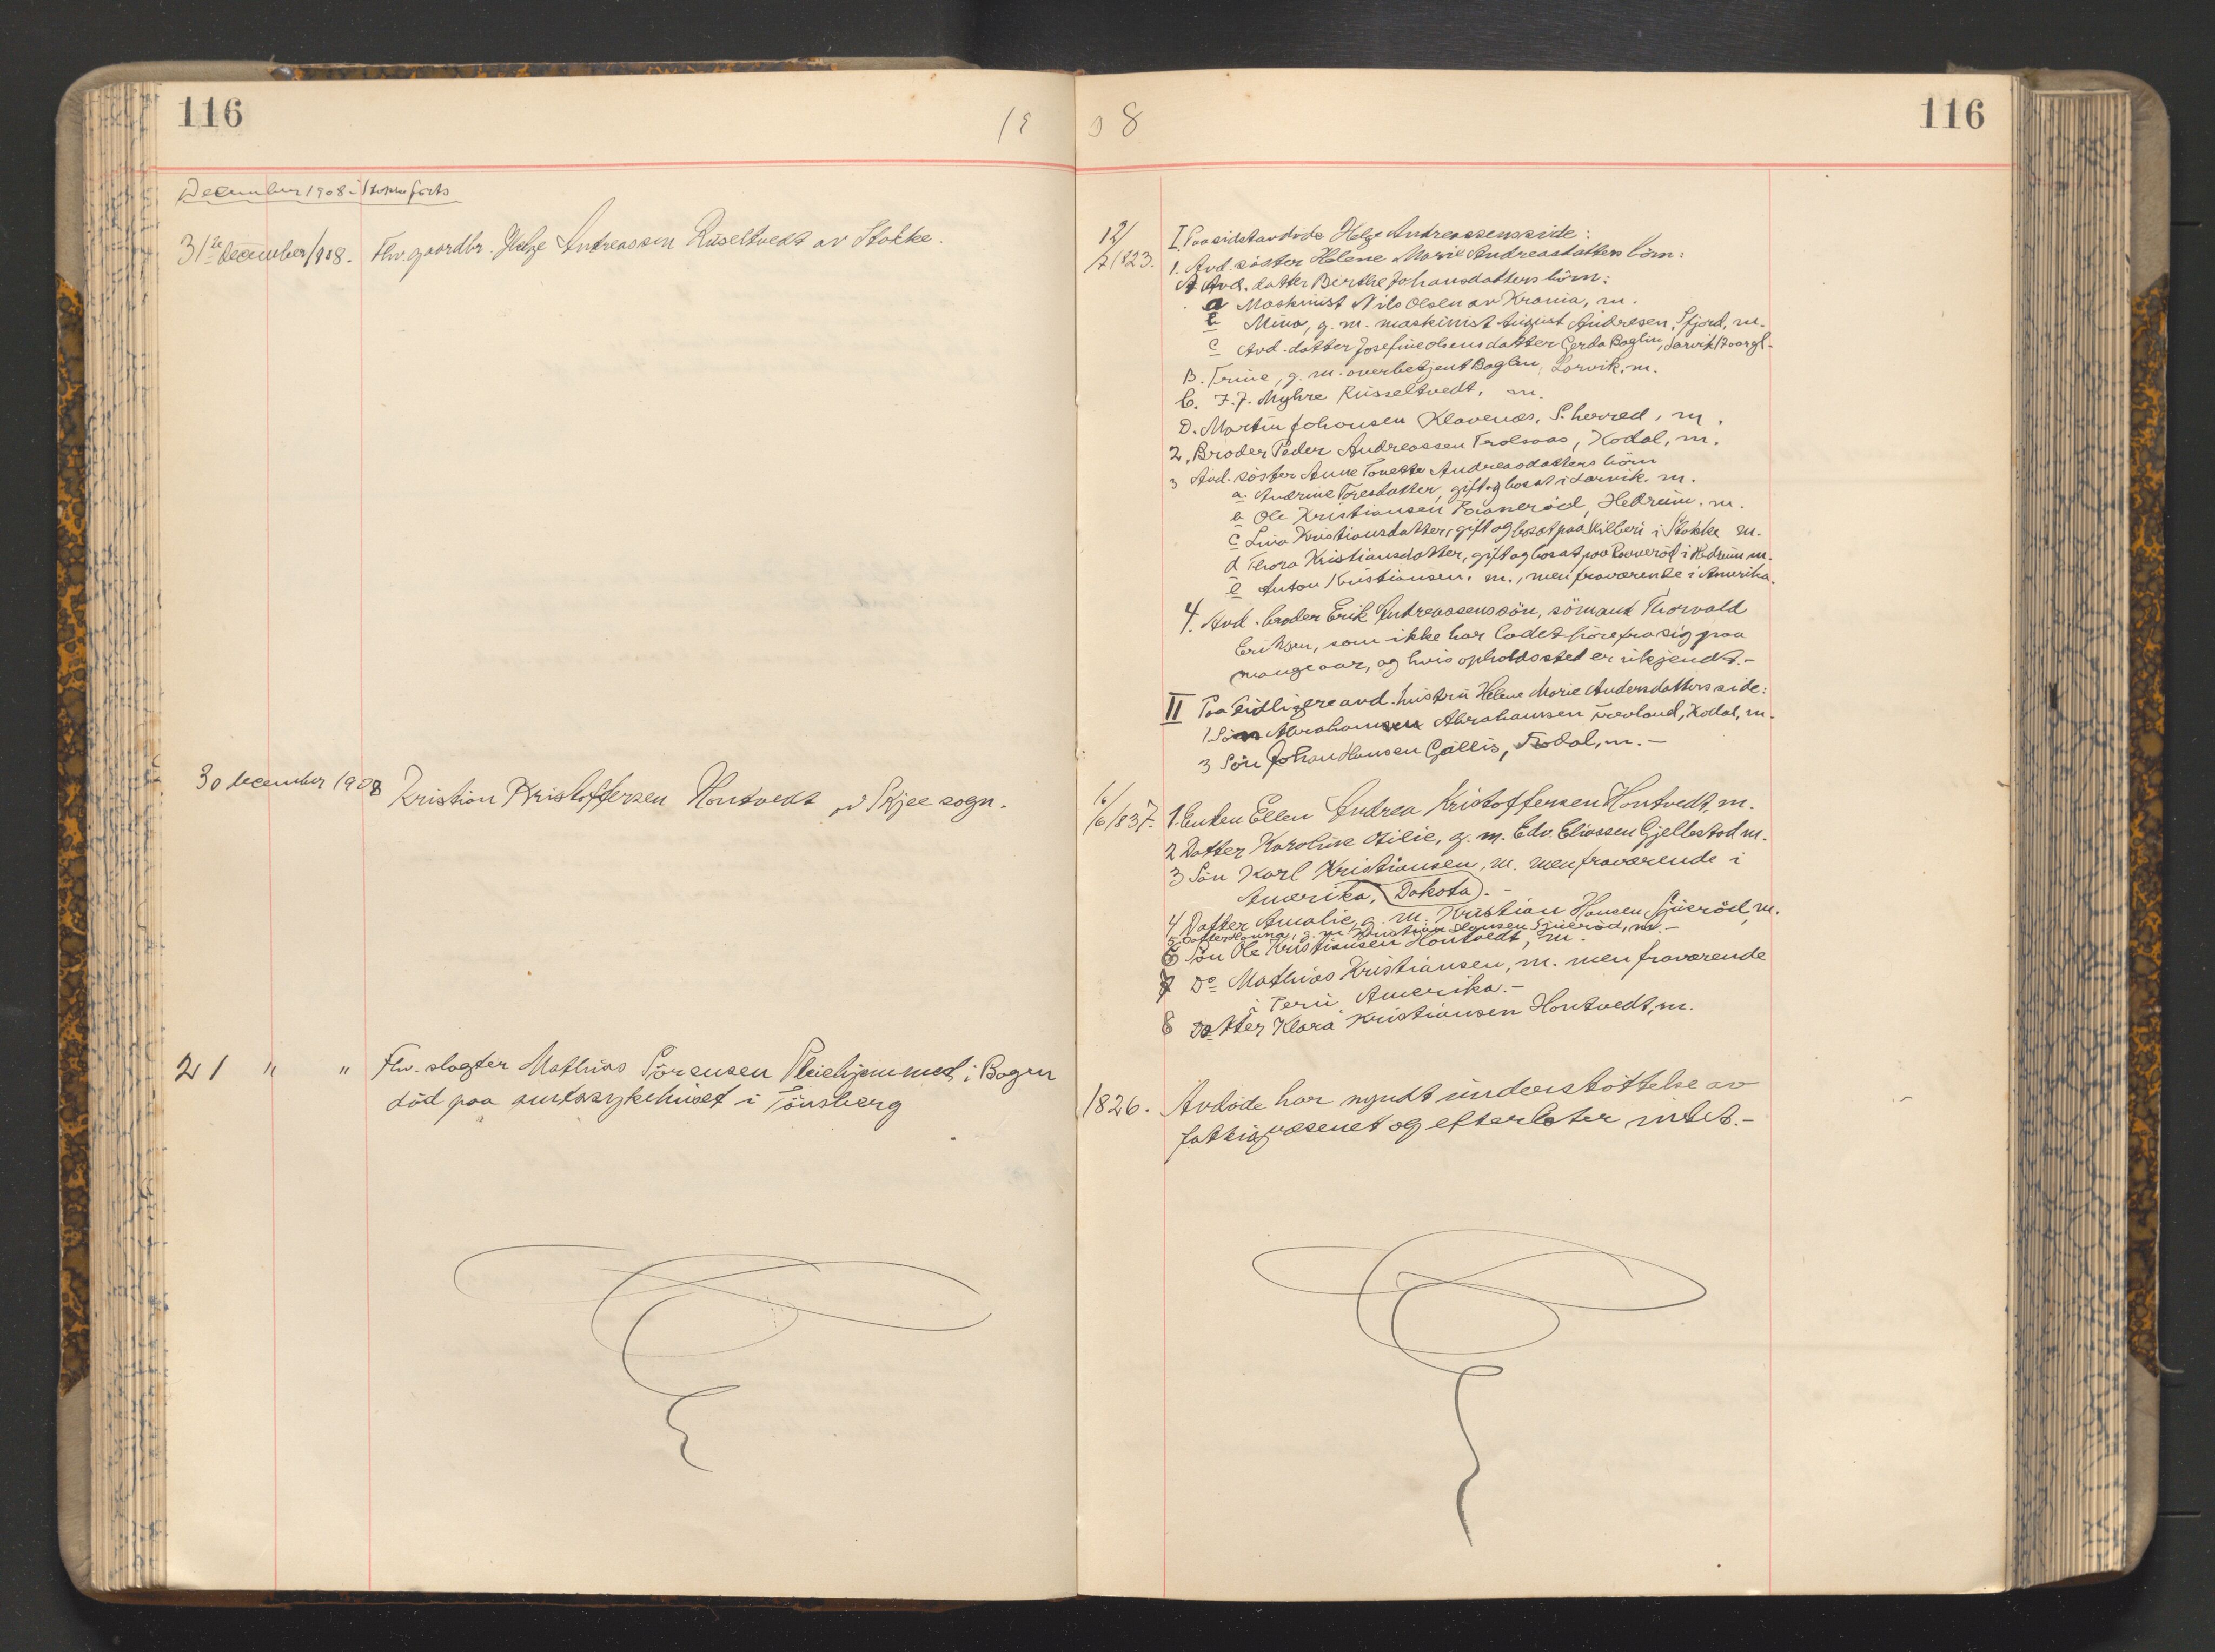 116
19
08
116
December 1908 i Stokke forts
31te december 1908. Fhv. gaardbr. Helge Andreassen Ruseltvedt av Stokke.
30 december 1908 Kristian Kristoffersen Hontvedt av Skjee sogn.
21 " " Fhv. slagter Mathias Sörensen Pleiehjemmet i Bogen
död paa amtssykehuset i Tönsberg
12/
7 1823.
I. Paa sidstavdöde Helge Andreassens side:
1. Avd. söster Helene Marie Andreasdatters börn:
A Avd. datter Berthe Johansdatters börn:
a Maskinist Nils Olsen av Krania, m.
b Mina, g. m. maskinist August Andresen, Sfjord, m.
c Avd. datter Josefine Olsens datter Gerda Baglin, Larvik,
B. Trine, g. m. overbetjent Baglin, Larvik, m.
C. J. J. Myhre Russeltvedt, m.
D. Martin Johansen Klavenes, S. herred, m.
2, Broder Peder Andreassen Trolsaas, Kodal, m.
3 Avd. söster Anne Tonette Andreasdatters börn
a. Andrine Toresdatter, gift og bosat i Larvik. m.
b Ole Kristiansen Hedrum. m.
c Lina Kristiansdatter, gift og bosat paa i Stokke m.
d Thora Kristiansdatter, gift og bosat paa i Hedrum m.
e Anton Kristiansen, m., men fraværende i Amerika.
4. Avd. broder Erik Andreassens sön, sömand Thorvald
Eriksen, som ikke har ladet höre fra sig paa
mange aar, og hvis opholdssted er ukjendt.-
II Paa tidligere avd. hustru Helene Marie Andersdatters side:
1. Sön Abraham Abrahamsen Trevland, Kodal, m.
3 Sön Johan Hansen Gallis, Kodal, m.-
16/
6 1837.
1. Enken Ellen Andrea Kristoffersen Hontvedt, m.
2 Datter Karoline Otilie, g. m. Edv. Eliassen Gjellestad m.
3 Sön Karl Kristiansen, m. men fraværende i
Amerika, (Dakota).-
4 Datter Amalie, g. m. Kristian Hansen Sjueröd, m.
5 Datter Hanna, g. m. Kristian Hansen Sjueröd, m.-
6 Sön Ole Kristiansen Hontvedt, m.
7 Do Mathias Kristiansen, m. men fraværende
i Peru Amerika.-
8 Datter Klara Kristiansen Hontvedt, m.
1826. Avdöde har nyndt understöttelse av
fattigvæsenet og efterlater intet.-